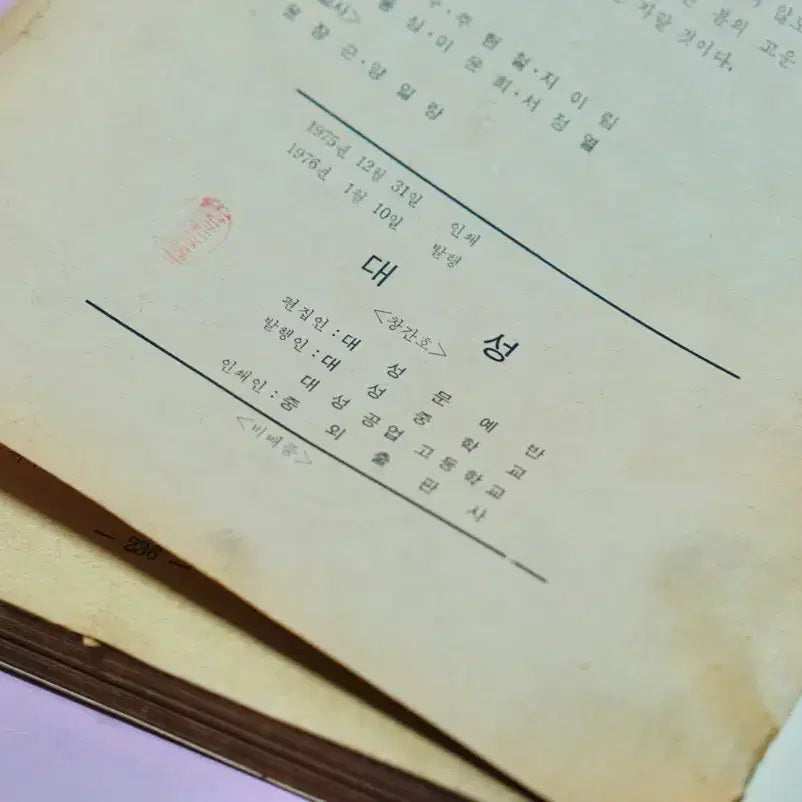 봄의 고운
자랄 것이다.
주 현 철·지 이 림
심·이 운 희·서 정 열
윤 장 근·양 일 랑
1975년 12월 31일 인쇄
1976년 1월 10일 발행
대 성
<창간호>
편집인:대 성 문 예 반
발행인:대 성 중 학 교
대 성 공 업 고 등 학 교
인쇄인:중 외 출 판 사
<비매품>
— 236 —